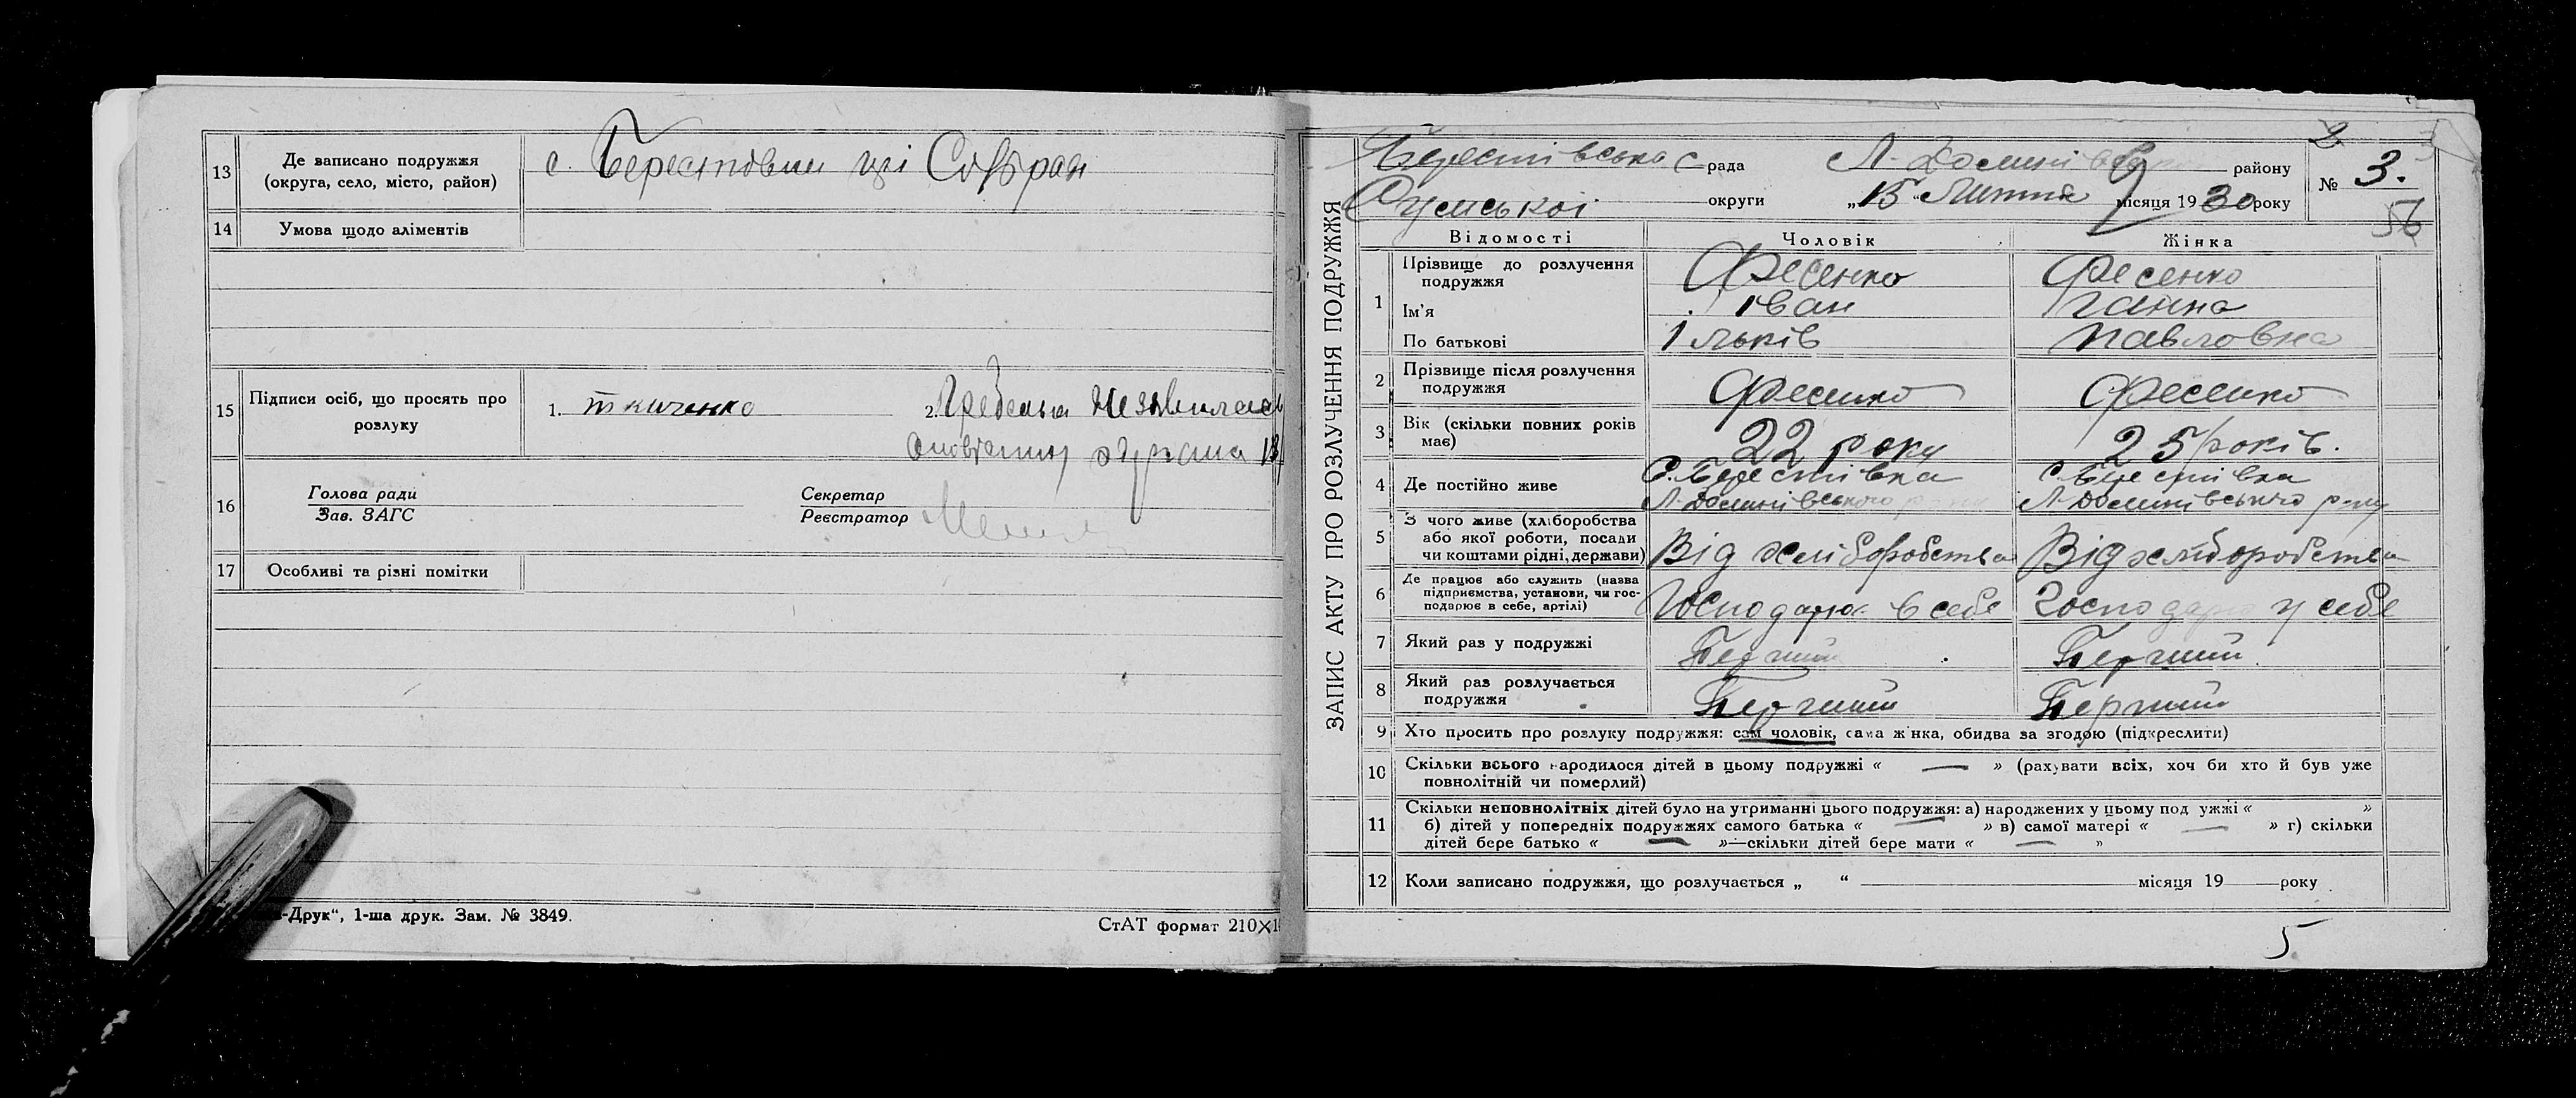 13 Де записано подружжя (округа, село, місто, район) с. Берестовии
14 Умова щодо аліментів
15 Підписи осіб, що просять про розлуку 1. ткиченко 2.
16 Голова ради Зав. ЗАГС Секретар Реєстратор
17 Особливі та різні помітки
-Друк“, 1-ша друк. Зам. № 3849.
СтАТ формат 210×1
ЗАПИС АКТУ ПРО РОЗЛУЧЕННЯ ПОДРУЖЖЯ
Берестівська с рада Л. району
Сумської округи „15“ Лютня місяця 1930 року
№ 3.
56
Відомості Чоловік Жінка
1 Прізвище до розлучення подружжя Фесенко Фесенко
Ім'я Іван Ганна
По батькові Ільків Павловна
2 Прізвище після розлучення подружжя Фесенко Фесенко
3 Вік (скільки повних років має) 22 року 25 років.
4 Де постійно живе С. Берестівка с. Берестівка
Л. Долинівського Л. Долинівського р-ну
5 З чого живе (хліборобства або якої роботи, посади чи коштами рідні, держави) Від хліборобства Від хліборобства
6 Де працює або служить (назва підприємства, установи, чи господарює в себе, артілі) Господарює в себе Господарює у себе
7 Який раз у подружжі Перший Перший
8 Який раз розлучається подружжя Перший Перший
9 Хто просить про розлуку подружжя: сам чоловік, сама жінка, обидва за згодою (підкреслити)
10 Скільки всього народилося дітей в цьому подружжі « — » (рахувати всіх, хоч би хто й був уже
повнолітній чи померлий)
11 Скільки неповнолітніх дітей було на утриманні цього подружжя: а) народжених у цьому подружжі « — »
б) дітей у попередніх подружжях самого батька « — » в) самої матері « — » г) скільки
дітей бере батько « — »—скільки дітей бере мати « — »
12 Коли записано подружжя, що розлучається „ “ місяця 19 року
5